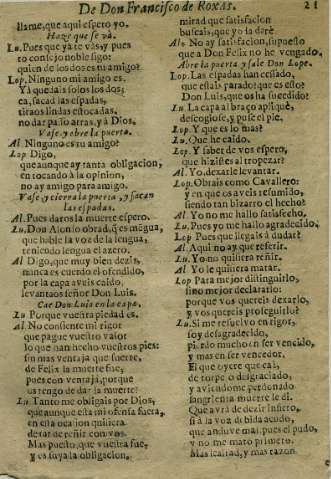 De Don Francisco de Roxas. 21
llame, que aqui espero yo.
Haze que se và.
Lu. Pues que ya te vàs, y pues
to consejo noble sigo:
quien de los dos es tu amigo?
Lop. Ninguno mi amigo es.
Yà quedais solos los dos;
ea, sacad las espadas,
tiraos lindas estocadas,
no dar passo atras, y à Dios.
Vase, y abre la puerta.
Al. Ninguno es tu amigo?
Lop Digo,
que aunque ay tanta obligacion,
en tocando à la opinion,
no ay amigo para amigo.
Vase, y cierra la puerta, y sacan
las espadas.
Al. Pues daros la muerte espero.
Lu. Don Alonso obrad, q es mẽgua,
que hable la voz de la lengua,
teniendo lengua el azero.
Al Digo, que muy bien dezis,
nunca es cuerdo el ofendido,
por la capa aveis caido,
levantaos señor Don Luis.
Cae Don Luis en la capa.
Lu Porque vuestra piedad es.
Al. No consiente mi rigor
que pague vuestro valor
lo que han hecho vuestros pies:
sin mas ventaja que suerte,
de Felix la muerte fue,
pues con ventaja, porquè
os tengo de dar la muerte?
Lu Tanto me obligais por Dios,
que aunque essa mi ofensa fuera,
en esta ocasion quisiera
dexar de reñir con vos.
Mas puesto, que vuestra fue,
y es suya la obligacion,
mirad que satisfacion
buscais, que yo la darè.
Al. No ay satisfacion, supuesto
que a Don Felix no he vengado.
Abre la puerta, y sale Don Lope.
Lop. Las espadas han cessado,
que estais parado? que es esto?
Don Luis, que os ha sucedido?
Lu La capa al braço apliquè,
descogiose, y puse el pie,
Lop. Y que es lo mas?
Lu. Que he caido.
Lop. Y saber de vos espero,
que hizisteis al tropezar?
Al. Yo, dexarle levantar.
Lop. Obrais como Cavallero:
y en que os aveis resumido,
siendo tan bizarro el hecho?
Al. Yo no me hallo satisfecho.
Lu. Pues yo me hallo agradecido.
Lop Pues que llegais à dudar?
Al. Aqui no ay que referir.
Lu. Yo no quisiera reñir.
Al. Yo le quisiera matar.
Lop Para mejor distinguirlo,
sino mejor declararlo:
porque vos quereis dexarlo,
y vos quereis proseguirlo?
Lu. Si me resuelvo en rigor,
soy desagradecido,
pierdo mucho en ser vencido,
y mas en ser vencedor.
El que oyere que caì,
de torpe, o desgraciado,
y aviendome perdonado
sangrienta muerte le dì.
Que avrà de dezir infiero,
si à la voz debida acudo,
que anduve mal, pues el pudo,
y no me matò primero.
Mas lealtad, y mas razon,